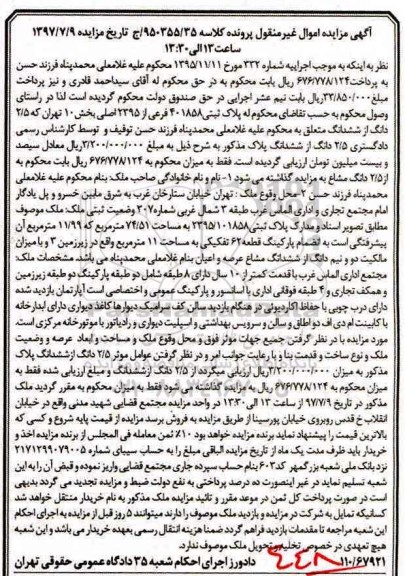 آگهی مزایده اموال غیرمنقول پرونده کلاسه ۹۵۰۳۵۵/۳۵/ج تاریخ مزایده ۱۳۹۷/۷/۹
ساعت ۱۳ الی ۱۳:۳۰
نظر به اینکه به موجب اجراییه شماره ۳۳۲ مورخ ۱۳۹۵/۱۱/۱۱ محکوم علیه غلامعلی محمدپناه فرزند حسن
به پرداخت ۶۷۶/۷۷۸/۱۲۴ ریال بابت محکوم به در حق محکوم له آقای سیداحمد قادری و نیز پرداخت
مبلغ ۳۳/۸۵۰/۰۰۰ ریال بابت نیم عشر اجرایی در حق صندوق دولت محکوم گردیده است لذا در راستای
وصول محکوم به حسب تقاضای محکوم له پلاک ثبتی ۴۰۱۸۵۸ فرعی از ۲۳۹۵ اصلی بخش ۱۰ تهران که ۲/۵
دانگ از ششدانگ متعلق به محکوم علیه غلامعلی محمدپناه فرزند حسن توقیف و توسط کارشناس رسمی
دادگستری ۲/۵ دانگ از ششدانگ پلاک مذکور به شرح ذیل به مبلغ ۳/۲۰۰/۰۰۰/۰۰۰ ریال معادل سیصد
و بیست میلیون تومان ارزیابی گردیده است. فقط به میزان محکوم به ۶۷۶/۷۷۸/۱۲۴ ریال بابت محکوم به
از ۲/۵ دانگ مشاع به مزایده گذاشته می شود ۱- نام و نام خانوادگی صاحب ملک: بنام محکوم علیه غلامعلی
محمدپناه فرزند حسن ۲- محل وقوع ملک: تهران خیابان ستارخان غرب به شرق مابین خسرو و پل یادگار
امام مجتمع تجاری و اداری الماس غرب طبقه ۳ شمال غربی شماره ۲۰۷ وضعیت ثبتی ملک: ملک موصوف
مطابق تصویر اسناد و مدارک پلاک ثبتی ۲۳۹۵/۴۰۱۸۵۸ به مساحت ۷۴/۵۱ مترمربع که ۱۱/۹۹ مترمربع آن
پیشرفتگی است به انضمام پارکینگ قطعه ۶۲ تفکیکی به مساحت ۱۱ مترمربع واقع در زیرزمین ۳ و با میزان
مالکیت دو و نیم دانگ از ششدانگ مشاع عرصه و اعیان بنام غلامعلی محمدپناه می باشد. مشخصات ملک:
مجتمع اداری الماس غرب با قدمت کمتر از ۱۰ سال دارای ۸ طبقه شامل دو طبقه پارکینگ دو طبقه زیرزمین
و همکف تجاری و ۴ طبقه فوقانی اداری با آسانسور و پارکینگ عمومی و اختصاصی است آپارتمان بازدید شده
دارای درب چوبی با حفاظ آکاردئونی در هنگام بازدید سالن کف سرامیک دیوارها کاغذ دیواری دارای آبدارخانه
با کابینت ام دی اف دو اطاق و سالن و سرویس بهداشتی و اسپلیت دیواری و رادیاتور با موتورخانه مرکزی است.
مورد مزایده با در نظر گرفتن جمیع جهات موثر فوق و محل وقوع ملک و مساحت و ابعاد عرصه و وضعیت
ملک و نوع ساخت و قدمت بنا و با رعایت جوانب امر و در نظر گرفتن عوامل موثر ۲/۵ دانگ از ششدانگ پلاک
مذکور به میزان ۳/۲۰۰/۰۰۰/۰۰۰ ریال ارزیابی میگردد از ۲/۵ دانگ از ششدانگ و مبلغ ارزیابی شده فقط به
میزان محکوم به ۶۷۶/۷۷۸/۱۲۴ ریال به مزایده گذاشته می شود فقط به میزان محکوم به مقرر گردید ملک
مذکور در تاریخ ۹۷/۷/۹ از ساعت ۱۳ الی ۱۳:۳۰ در واحد مزایده مجتمع قضایی شهید مدنی واقع در خیابان
انقلاب خ قدس روبروی خیابان پورسینا از طریق مزایده به فروش برسد مزایده از قیمت پایه شروع و کسی که
بالاترین قیمت را پیشنهاد نماید برنده مزایده خواهد بود ۱۰٪ ثمن معامله فی المجلس از برنده مزایده اخذ و
خریدار باید ظرف مدت یک ماه از تاریخ مزایده الباقی مبلغ را به حساب سیبای شماره ۲۱۷۱۲۹۰۷۹۰۰۵
نزد بانک ملی شعبه بزرگمهر کد ۶۰۳ بنام حساب سپرده جاری مجتمع قضایی واریز نموده و قبض آن را به این
شعبه تسلیم نماید در غیر اینصورت ده درصد پرداختی به نفع دولت ضبط و مزایده تجدید می گردد بدیهی
است در صورت پرداخت کل ثمن در موعد مقرر و تائید مزایده ملک مذکور به نام خریدار منتقل خواهد شد
کسانیکه تمایل به شرکت در مزایده و بازدید ملک موصوف را دارند میتوانند ۵ روز قبل از مزایده به اجرای احکام
این شعبه مراجعه تا مقدمات بازدید فراهم گردد ضمنا هزینه انتقال رسمی بعهده خریدار می باشد و این شعبه
هیچ تعهدی در خصوص تخلیه و تحویل ملک موصوف ندارد.
۱۱۰/۶۷۹۲۱ دادورز اجرای احکام شعبه ۳۵ دادگاه عمومی حقوقی تهران